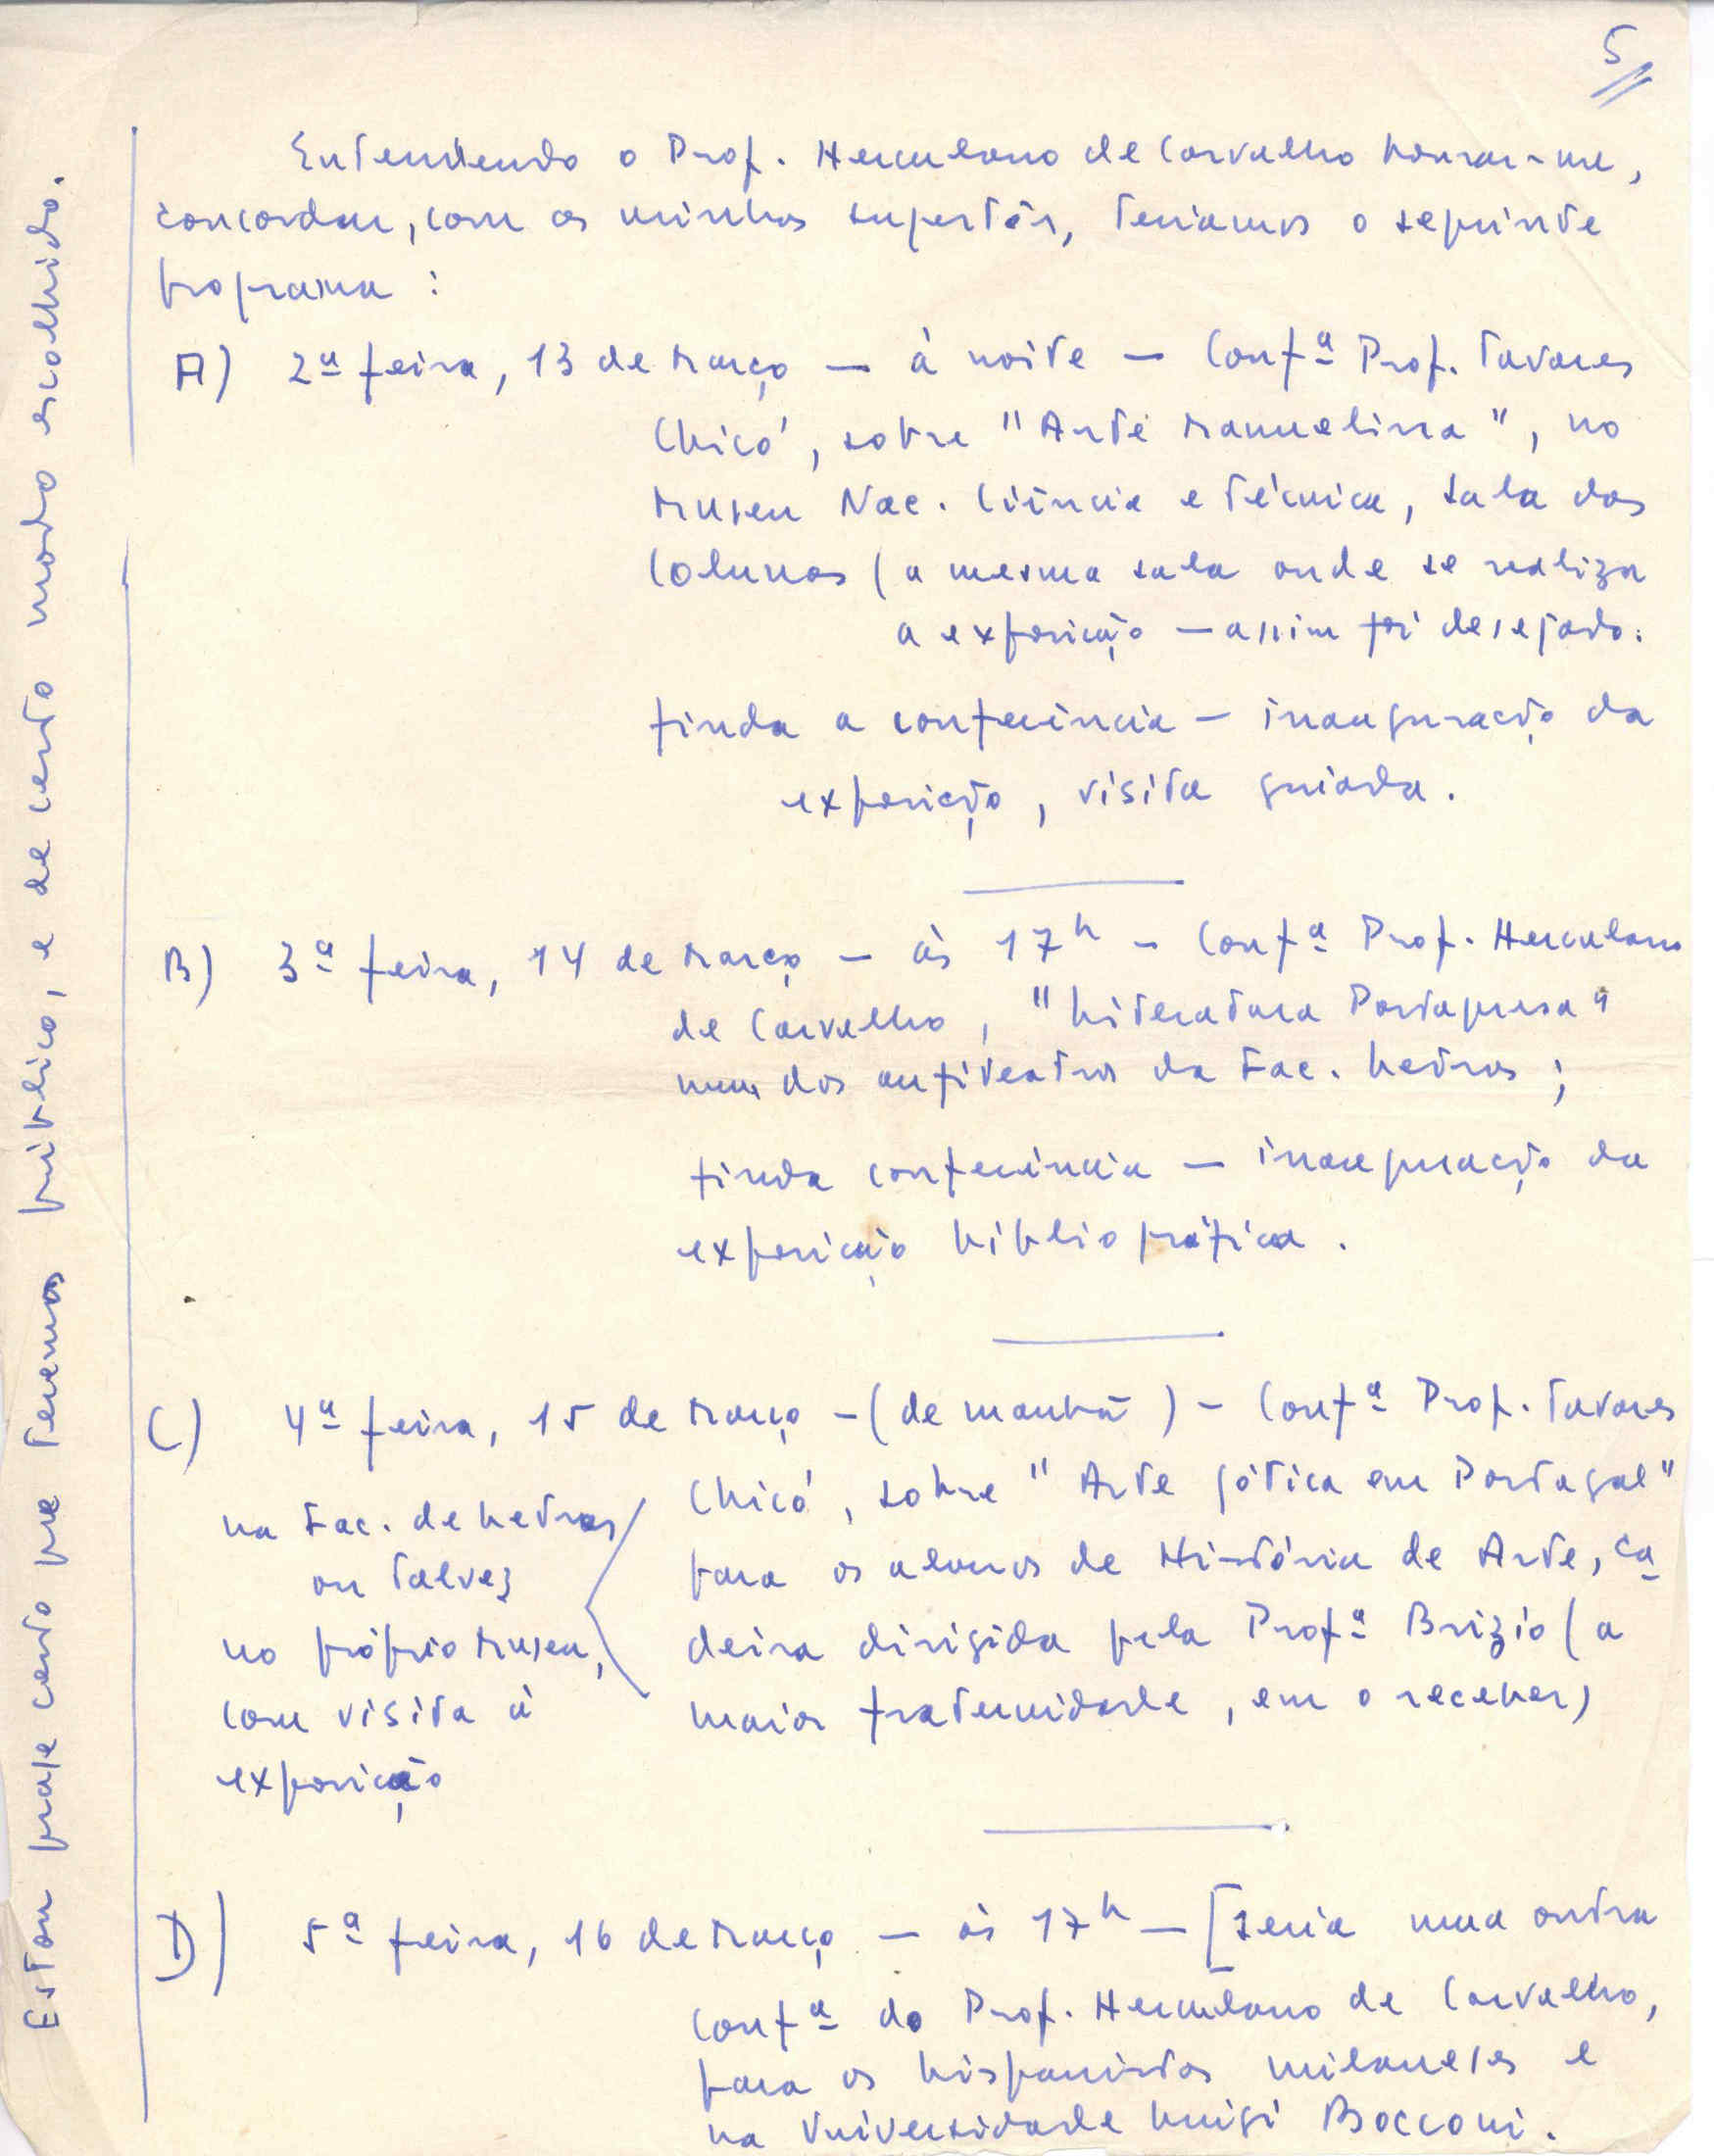 5
Entendendo o Prof. Herculano de Carvalho honrar-me,
concordar, com as minhas sugestões, teriamos o seguinte
programa :
A) 2ª feira, 13 de Março — à noite — Confª Prof. Tavares
Chicó, sobre "Arte Manuelina", no
Museu Nac. Ciência e Técnica, sala das
Colunas (a mesma sala onde se realiza
a exposição — assim foi desejado.
finda a conferência — inauguração da
exposição, visita guiada.
B) 3ª feira, 14 de Março — às 17h — Confª Prof. Herculano
de Carvalho, "Literatura Portuguesa"
num dos anfiteatros da Fac. Letras ;
finda conferência — inauguração da
exposição bibliográfica.
C) 4ª feira, 15 de Março — (de manhã) — Confª Prof. Tavares
Chicó, sobre "Arte gótica em Portugal"
para os alunos de História de Arte, ca
deira dirigida pela Profª Brizio (a
maior fraternidade, em o receber)
na Fac. de Letras
ou talvez
no próprio Museu,
com visita à
exposição
D) 5ª feira, 16 de Março — às 17h — [seria uma outra
confª do Prof. Herculano de Carvalho,
para os hispanistas milaneses e
na Universidade Luigi Bocconi.
Estou quase certo que teremos público, e de certo modo escolhido.